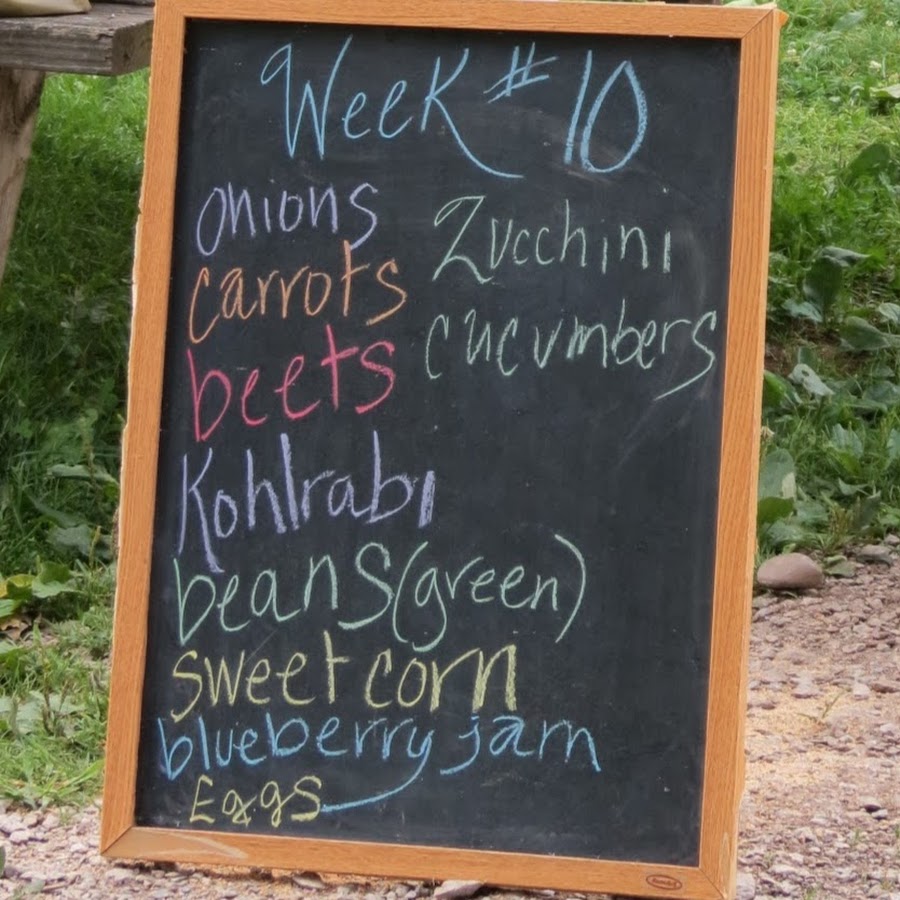 Week #10
onions
carrots
beets
Kohlrabi
beans (green)
sweet corn
blueberry jam
Eggs
Zucchini
cucumbers